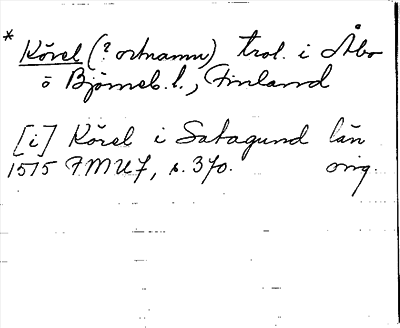 * Kõrel (? ortnamn) trol. i Åbo
o Björneb. l., Finland
[i] Kõrel i Satagund län
1575 FMU 7, s. 370. orig.